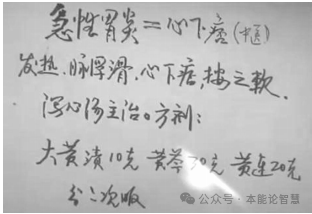 急性胃炎=心下痞(中医)
发热.脉浮滑.心下痞,按之软.
泻心汤主治。方剂:
大黄渍10克 黄芩10克 黄连20克
分二次服
公众号·本能论智慧